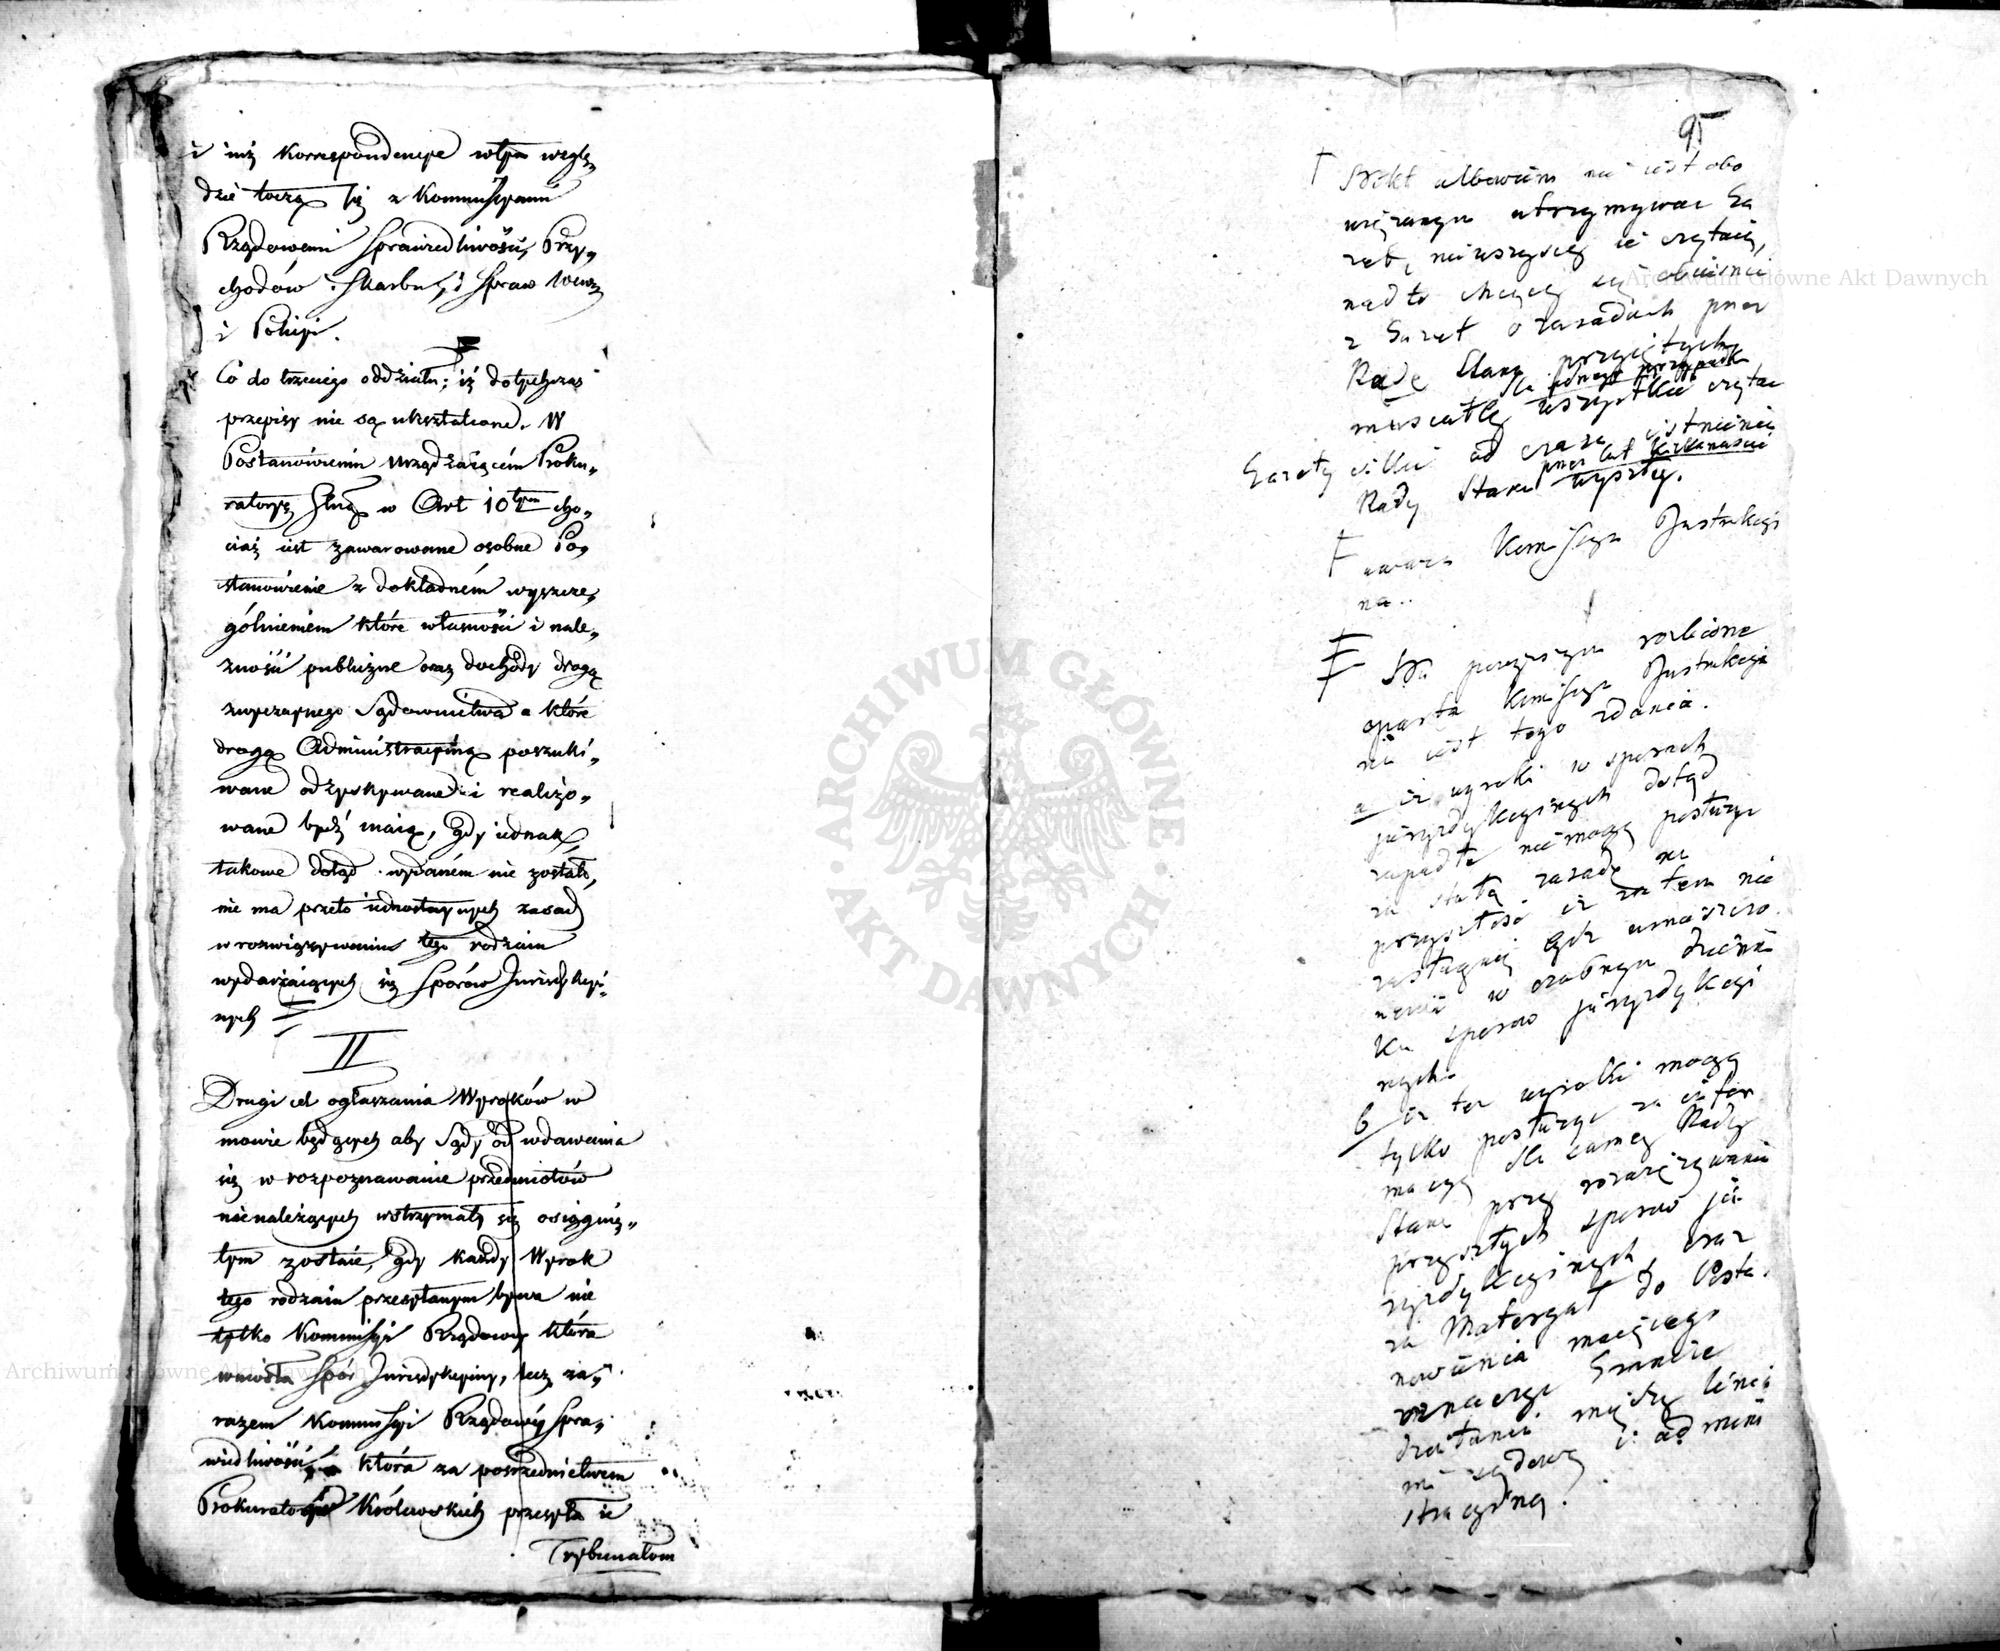 i iuż korrespondencye wtym wzglę„
dzie toczą się z Kommissyami
Rządowemi Sprawiedliwości, Przy„
chodów i Skarbu, i Spraw Wewn.
i Policyi.
Co do trzeciego oddziału; iż dotychczas
przepisy nie są ukształcone. W
Postanowieniu urządzaiącém Proku„
ratoryą Jlną w Art 10tym cho„
ciaż iest zawarowane osobne Po„
stanowienie z dokładném wyszcze„
gólnieniem które własności i nale„
żności publiczne oraz dochody drogą
zwyczaynego Sądownictwa a które
drogą Administracyiną poszuki„
wane odzyskywane i realizo„
wane bydź maią, gdy iednak
takowe dotąd wydaném nie zostało,
nie ma przeto iednostaynych zasad
w rozwiązywaniu tego rodzaiu
wydarzaiących się Sporów Jurisdykcyi„
nych
II
Drugi cel ogłaszania Wyroków w
mowie będących aby Sądy od wdawania
się w rozpoznawanie przedmiotów
nienależących wstrzymały się osiągnię„
tym zostaie, gdy każdy Wyrok
tego rodzaiu przesyłanym bywa nie
tylko Kommissyi Rządowey która
wniosła Spór Jurisdykcyiny, lecz za„
razem Kommissyi Rządowéy Spra„
wiedliwości która za pośrednictwem
Prokuratorów Królewskich przesyła ie
Trybunałom
95
Nikt albowiem nie iest obo
wiązanym utrzymywać Ga
zet, nie wszyscy ie czytaią,
nadto chcący się obeznać
z Gazet o zasadach przez
Radę Stanu przyiętych
dla iednego przypadku
musiałby wszystkie czytać
Gazety od czasu istnienia
przez lat kilkanaście
Rady Stanu wyszłe.
uważa Kommissya Instrukcyi
na..
Na powyższym
oparta Kommissya Instrukcyina
iest tego zdania.
a iż wyroki w sporach
juryzdykcyinych dotąd
zapadłe nie mogą posłużyć
za stałą zasadę na
przyszłość iż zatem nie
zasługuią być umieszczo
nemi w osobnym dzienni
ku sporów juryzdykcyi
nych.
b iż te wyroki mogą
tylko posłużyć za infor
macyą dla samey Rady
Stanu przy rozwiązywaniu
przyszłych sporów ju
ryzdykcyinych, oraz
za Materyał do Posta
nowienia maiącego
oznaczyć Granice
działania między linią
sądową i admini
stracyiną.
Archiwum Główne Akt Dawnych
ARCHIWUM GŁÓWNE · AKT DAWNYCH ·
Archiwum Główne Akt Dawnych